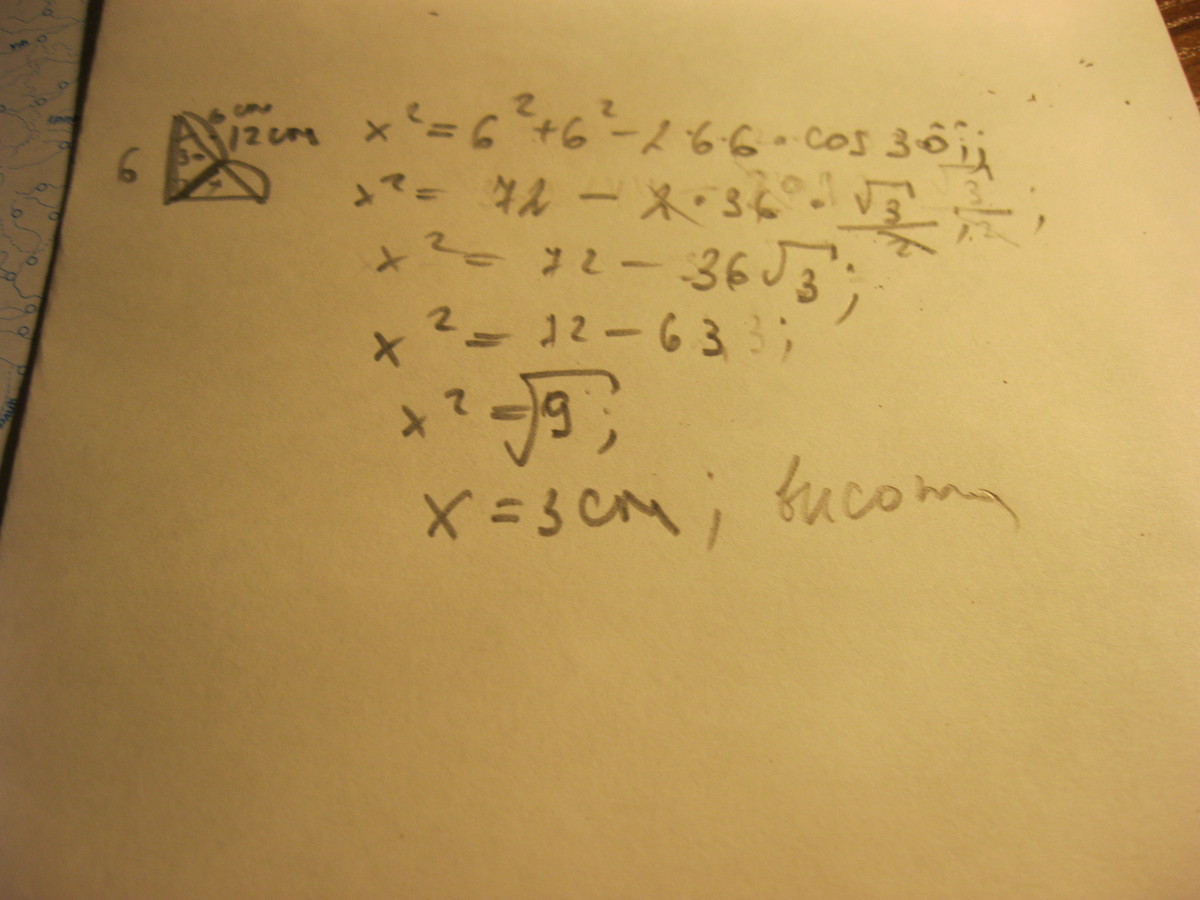 6 cm
12 cm
6
x² = 6² + 6² - 2·6·6 · cos 30°;
x² = 72 - 2·36 · √3/2;
x² = 72 - 36√3;
x² = 72 - 63;
x² = √9;
x = 3 cm; висота